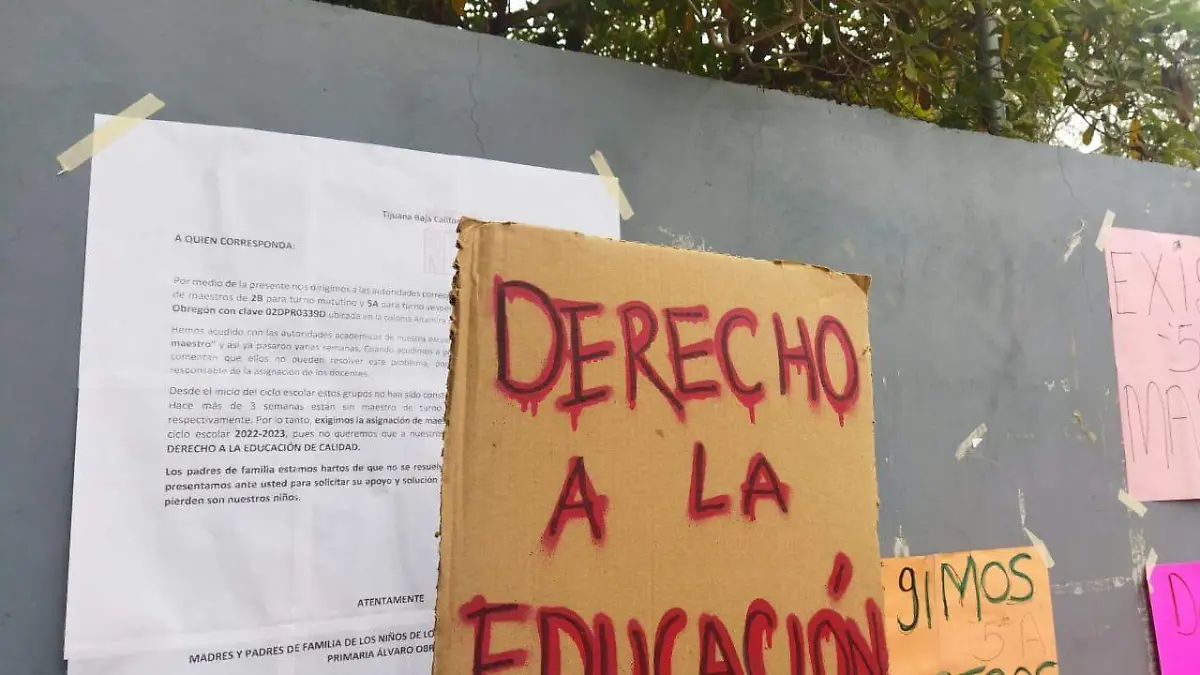 Tijuana Baja Califo
A QUIEN CORRESPONDA:
Por medio de la presente nos dirigimos a las autoridades corres
de maestros de 2B para turno matutino y 5A para turno vesper
Obregón con clave 02DPR0339D ubicada en la colonia Altamira
Hemos acudido con las autoridades academicas de nuestra escu
maestro" y asi ya pasaron varias semanas. Cuando acudimos a
comentan que ellos no pueden resolver este problema, por
responsable de la asignación de los docentes.
Desde el inicio del ciclo escolar estos grupos no han sido const
Hace más de 3 semanas están sin maestro de turno
respectivamente. Por lo tanto, exigimos la asignación de mae
ciclo escolar 2022-2023, pues no queremos que a nuestro
DERECHO A LA EDUCACIÓN DE CALIDAD.
Los padres de familia estamos hartos de que no se resuel
presentamos ante usted para solicitar su apoyo y solución
pierden son nuestros niños.
ATENTAMENTE
MADRES Y PADRES DE FAMILIA DE LOS NIÑOS DE LO
PRIMARIA ÁLVARO OBR
DERECHO
A LA
EDUCACIÓN
EXI
5
MA
gIMOS
5°A
D